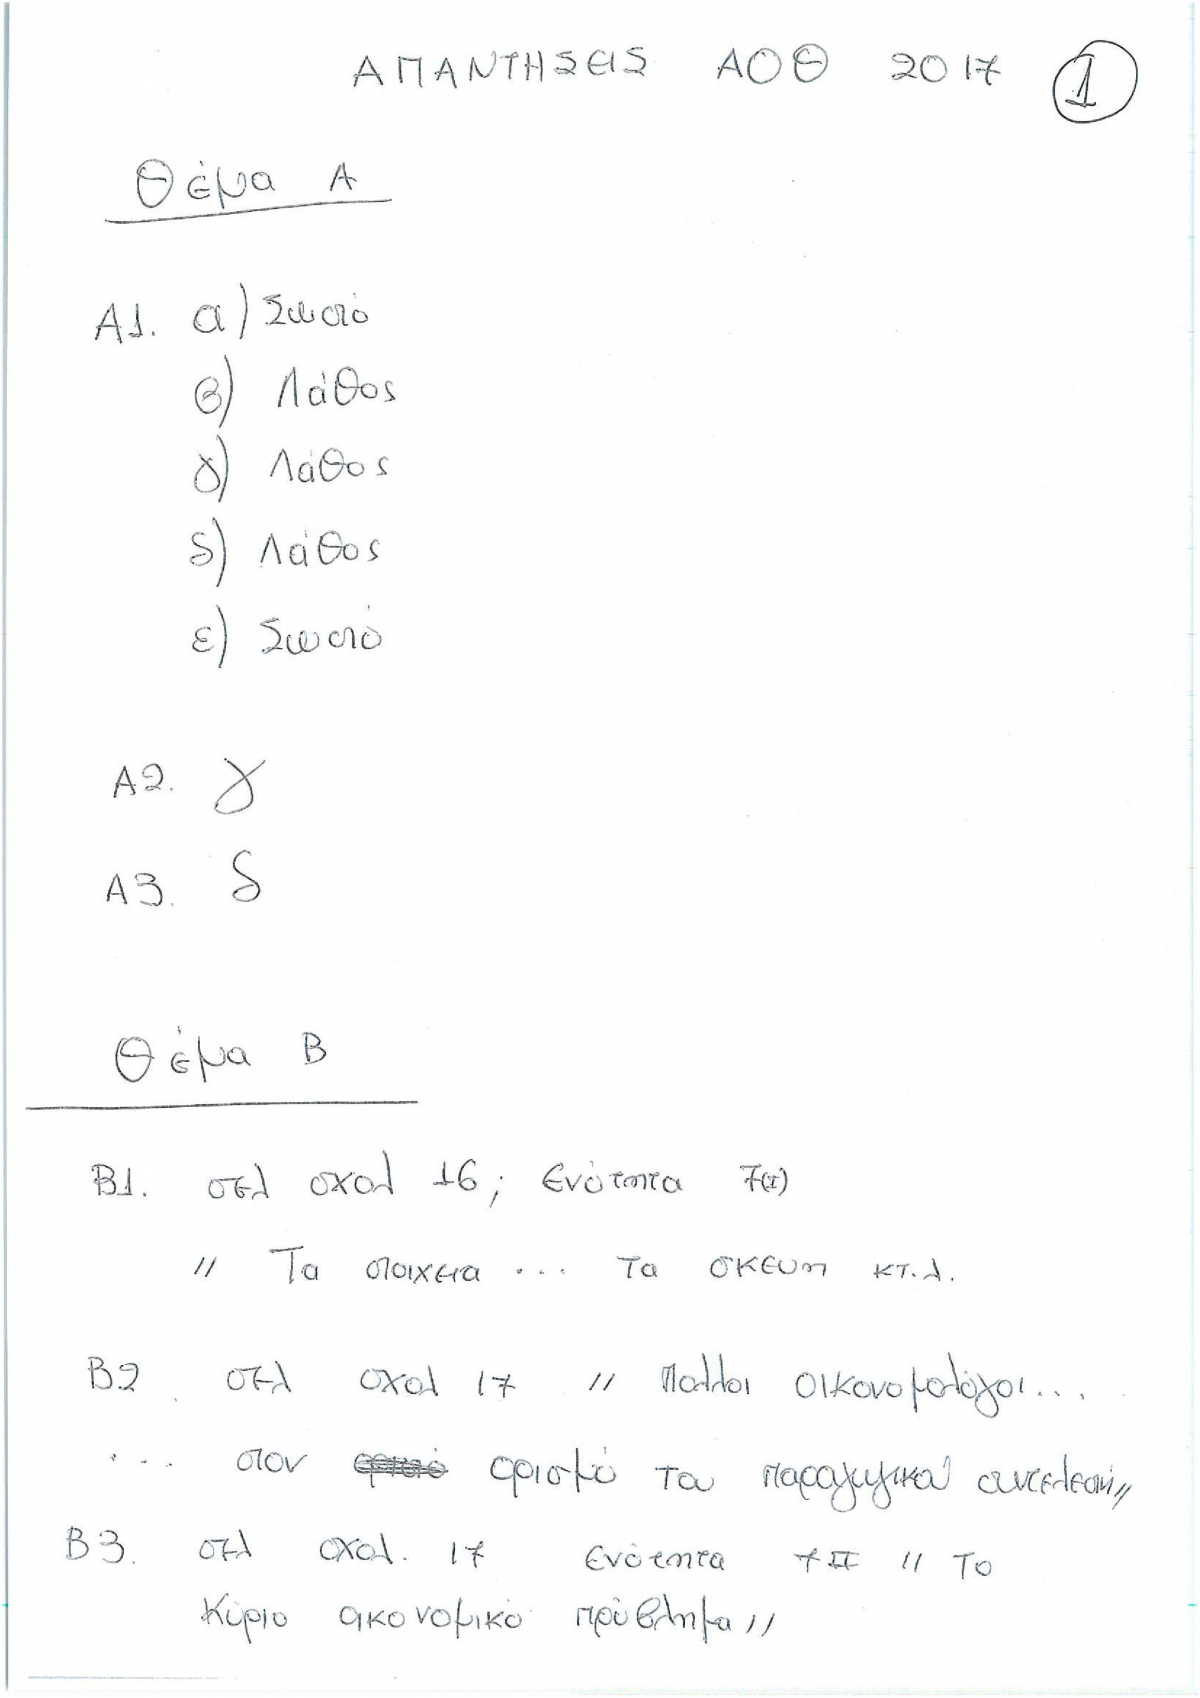 ΑΠΑΝΤΗΣΕΙΣ ΑΟΘ 2017 1
Θέμα Α
Α1. α) Σωστό
β) Λάθος
γ) Λάθος
δ) Λάθος
ε) Σωστό
Α2. γ
Α3. δ
Θέμα Β
Β1. σελ σχολ 16, ενότητα 7(Ι)
" Τα στοιχεια ... τα σκευη κτ.λ.
Β2. σελ σχολ 17 " Πολλοι οικονομολόγοι...
... στον ορισμό του παραγωγικού συντελεστή"
Β3. σελ σχολ. 17 ενότητα 7ΙΙ " Το
κύριο οικονομικό πρόβλημα"